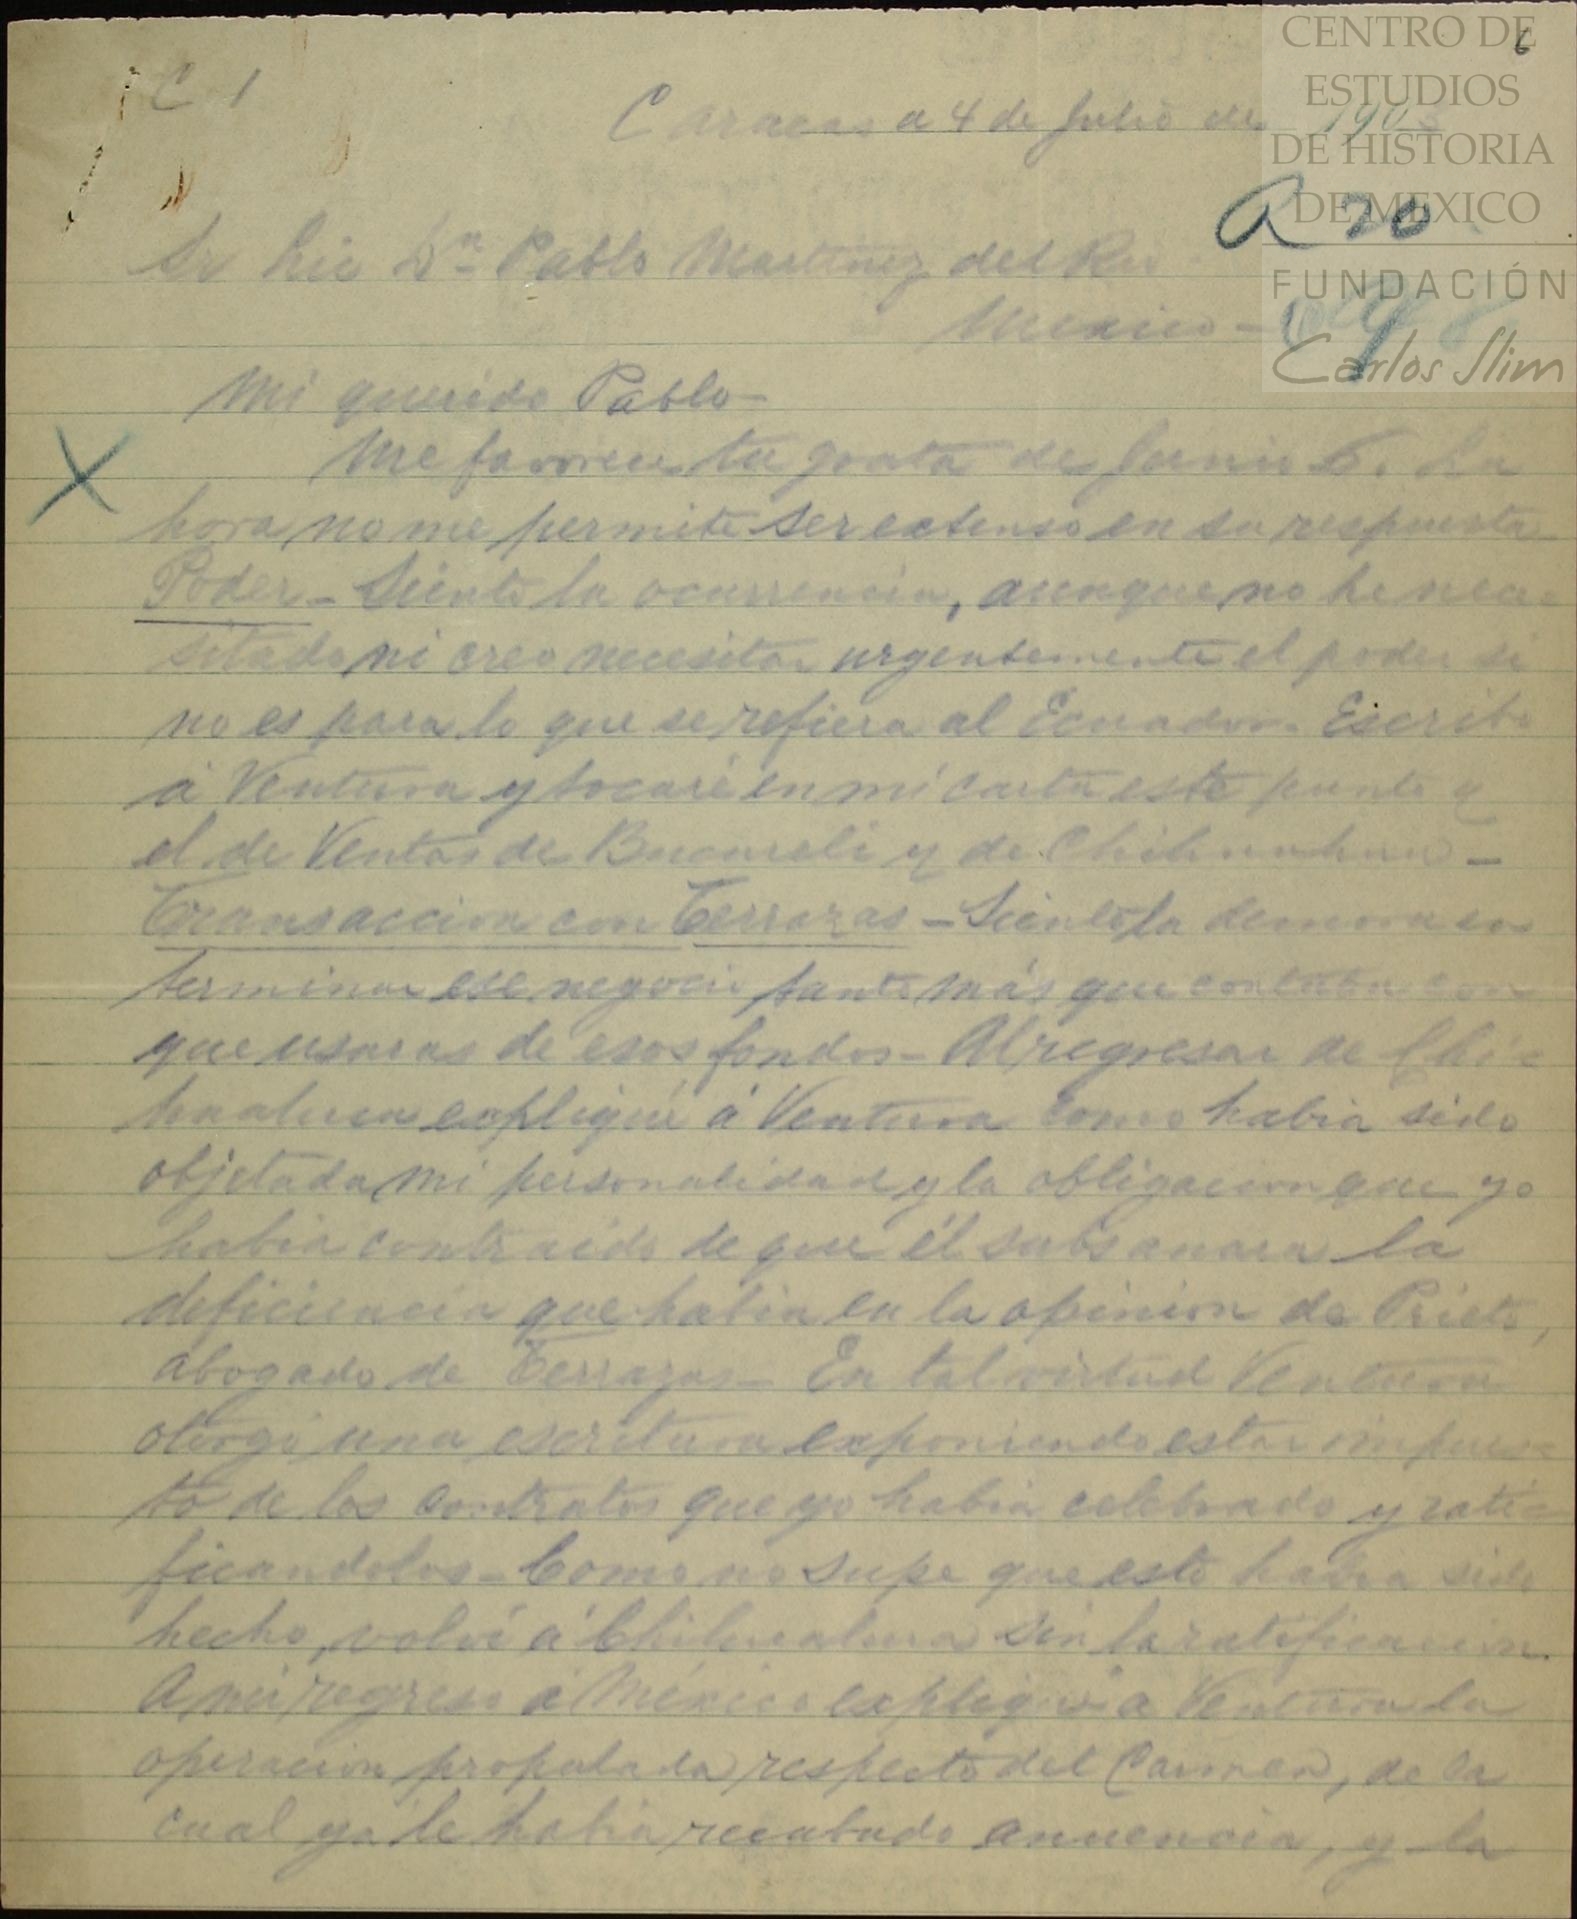 CENTRO DE
ESTUDIOS
DE HISTORIA
DE MEXICO
FUNDACIÓN
Carlos Slim
6
C 1
Caracas a 4 de Julio de 190
R 20
Sr Lic Dn Pablo Martinez del Rio
Mexico -
Mi querido Pablo -
Me favorece tu grata de Junio 6. La
hora no me permite ser extenso en su respuesta
Poder - Siento la ocurrencia, aunque no he nece-
sitado ni creo necesitar urgentemente el poder si
no es para lo que se refiera al Ecuador. Escribo
á Ventura y tocaré en mi carta este punto y
el de Ventas de Bucareli y de Chihuahua -
Transaccion con Terrazas - Siento la demora en
terminar ese negocio tanto más que contaba con
que usaras de esos fondos - Al regresar de Chi-
huahua expliqué á Ventura como habia sido
objetada mi personalidad y la obligacion que yo
habia contraido de que él subsanara la
deficiencia que habia en la opinion de Prieto,
abogado de Terrazas - En tal virtud Ventura
otorgó una escritura exponiendo estar impues-
to de los contratos que yo habia celebrado y rati-
ficandolos - Como no supe que esto habia sido
hecho, volví á Chihuahua sin la ratificacion.
A mi regreso á México expliqué a Ventura la
operacion propalada respecto del Carmen, de la
cual ya le habia recabado anuencia, y la